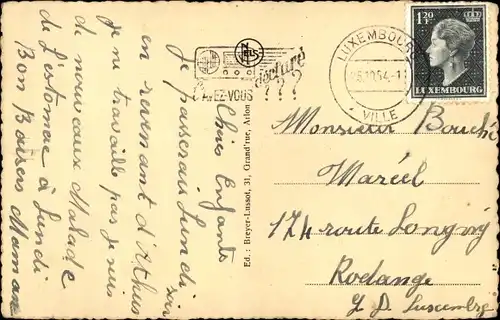 Chers Enfants
Je passerais Lundi soir
en revenant d'Athus
je ne travaille pas je suis
de nouveaux Malade
de l'estomac à Lundi
Bon Baisers Maman
NELS
AVEZ-VOUS
déclaré
???
Ed.: Breyer-Lussot, 31, Grand'rue, Arlon
LUXEMBOURG
VILLE
1.20 F.
LUXEMBOURG
Monsieur Bouche
Marcel
174 route Longwy
Rodange
g. D. Luxembrg